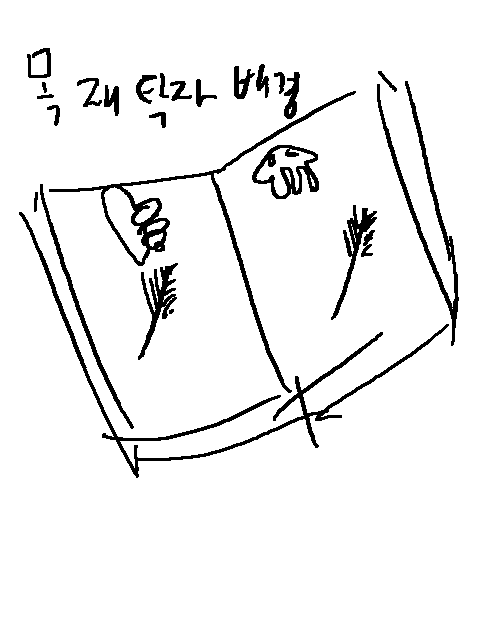 목재 탁자 배경